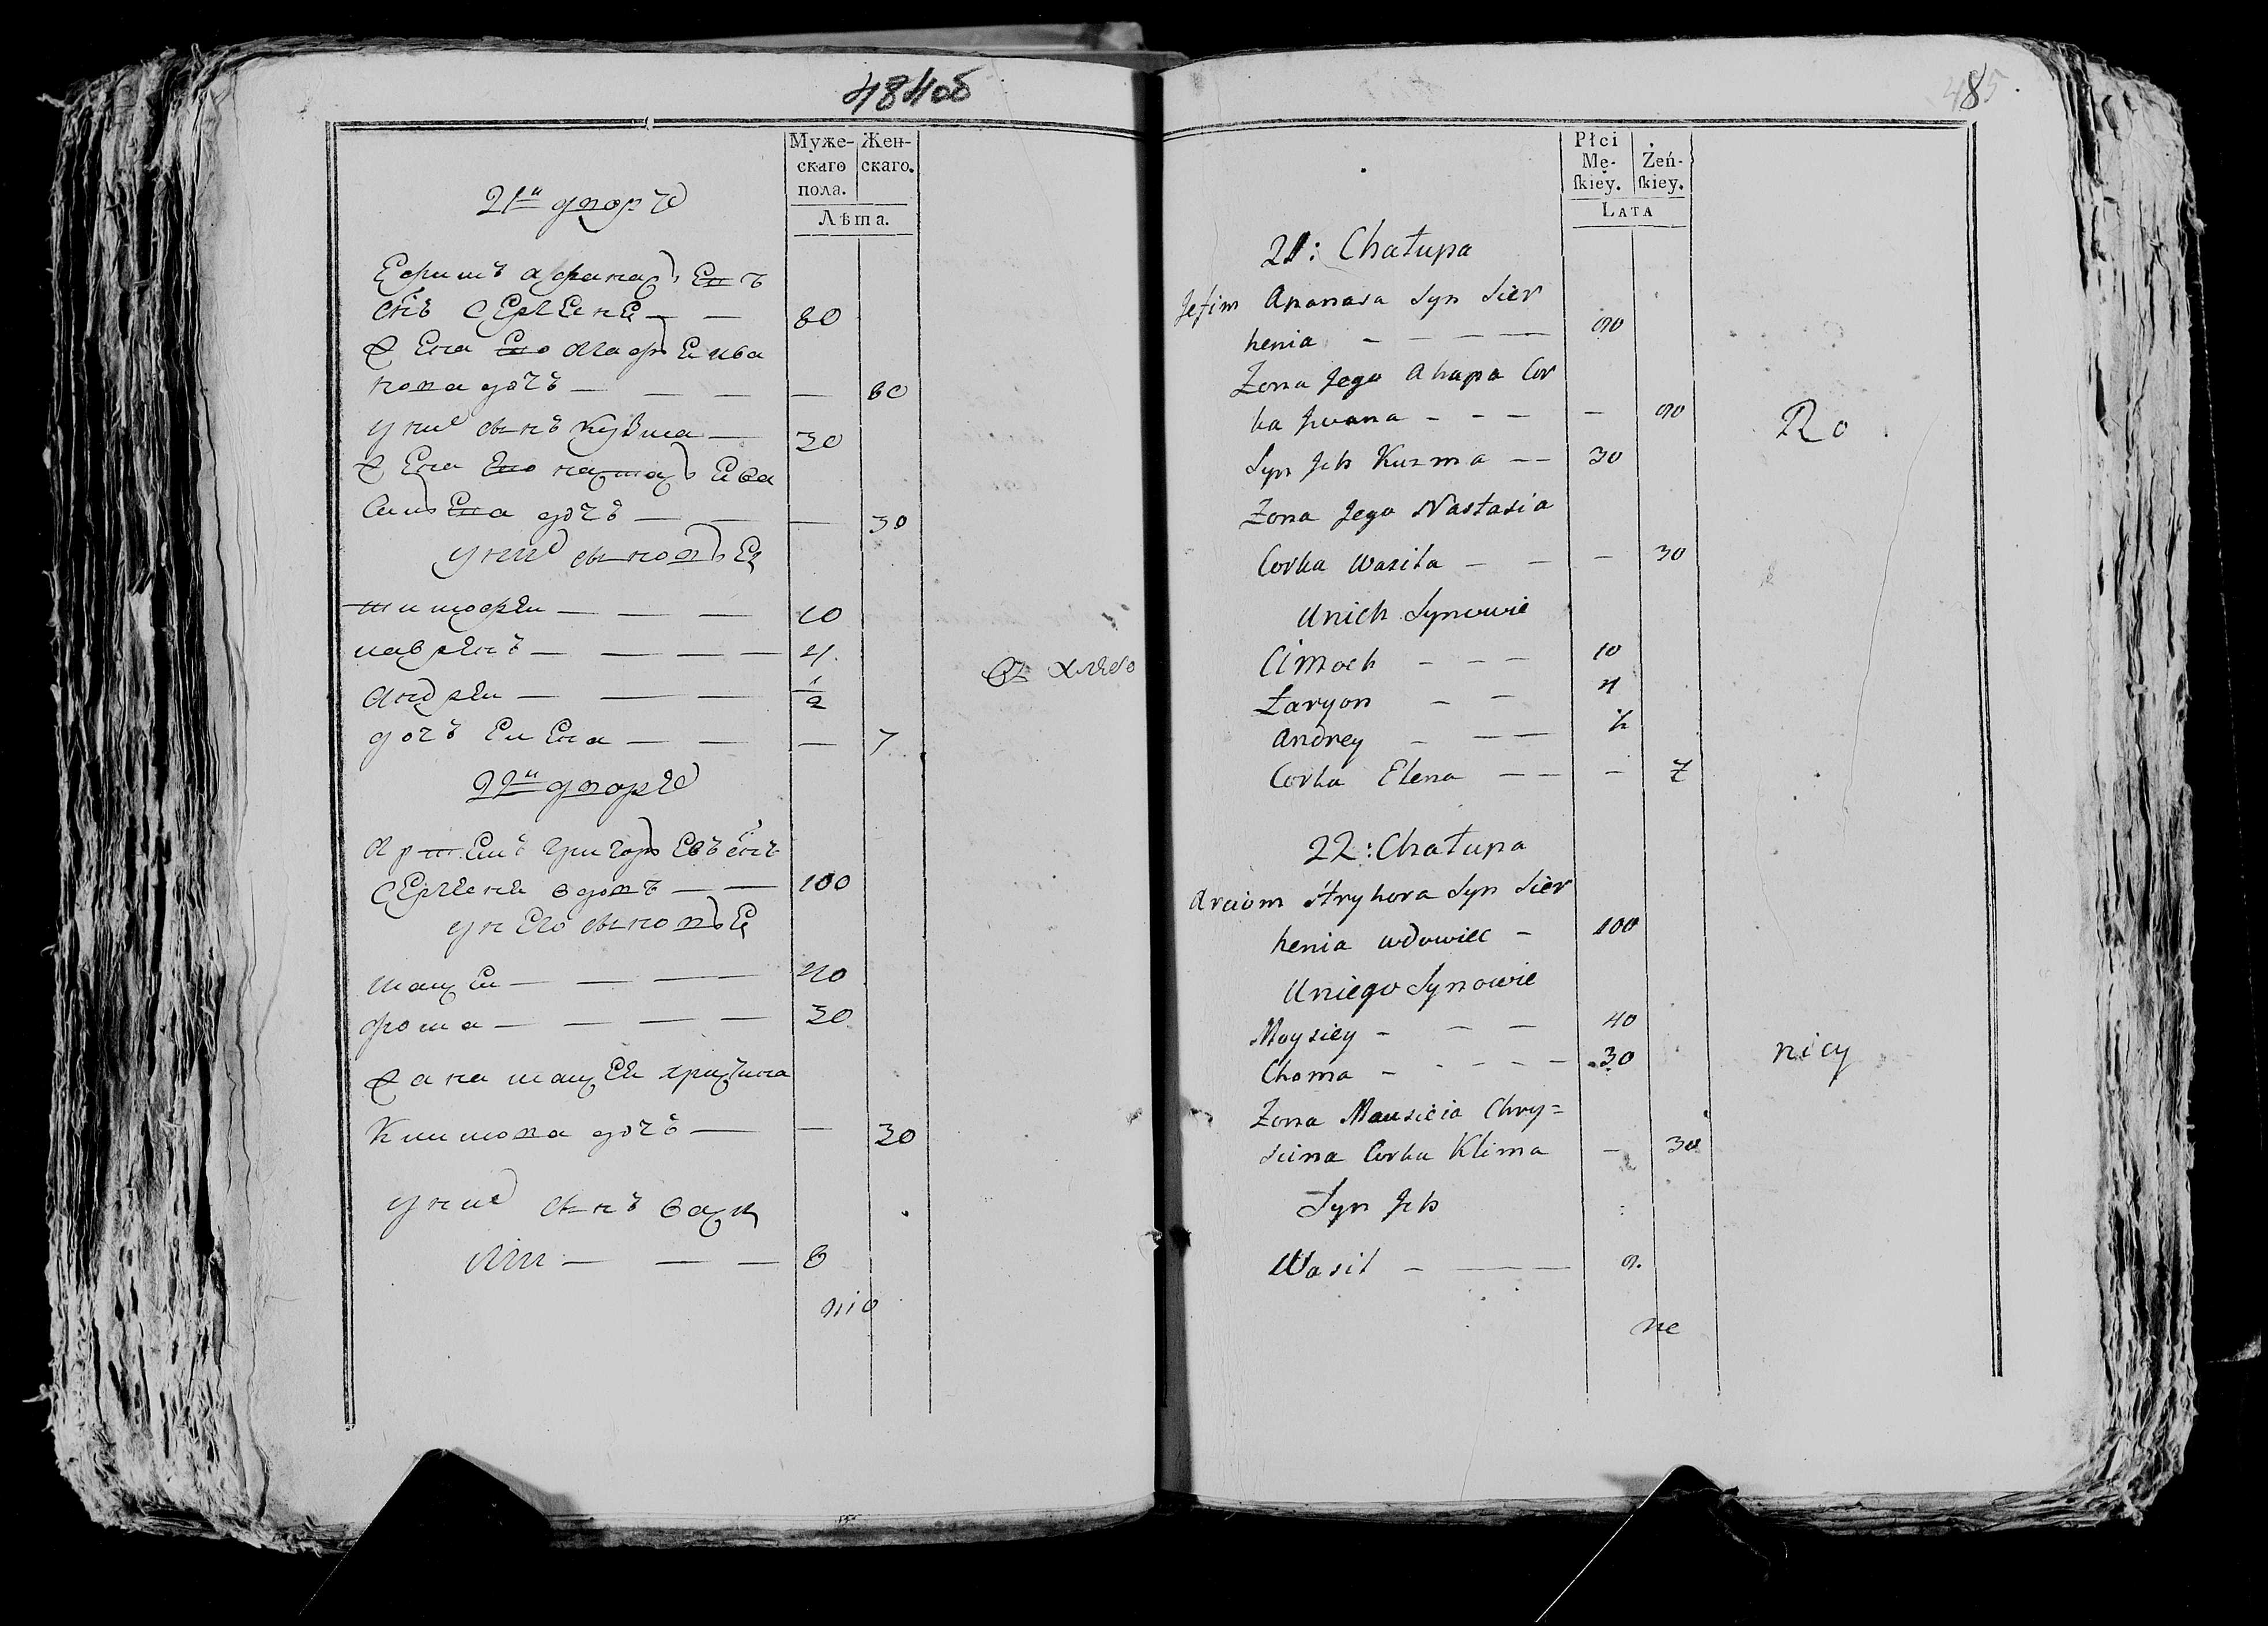 484об
Муже-
скаго
пола.
Жен-
скаго.
Лѣта.
21й дворъ
Ефимъ Афанасьевъ
снъ Сергеня — — 80
Жена его Агафья Ива
нова дочъ — — — — 60
У них сынъ Кузма — 30
Жена его Настасья Ва
сильева дочъ — — — 30
У них сыновья
Тимофей — — — 10
Лаврен — — — — 4
Андрей — — — 1/2
дочъ Елена — — — 7
22й дворъ
Артемъ Григорьевъ снъ
Сергеня вдовъ — — 100
у него сыновья
Мацей — — — 40
Фома — — — — 30
Жена Мацея
Климова дочъ — — 30
У них сынъ Васи
лий — — — 6
485
Płci
Mę-
skiey.
Żeń-
skiey.
LATA
21: Chałupa
Jefim Ananasa Syn Sier
henia — — — — 90
Zona Jego Ahapa Cor
ka Jwana — — — — 90
Ro
Syn Jch Kuzma — — 30
Zona Jego Nastasia
Corka Wasila — — — 30
Unich Synowie
Cimoch — — — 10
Łaryon — — 4
Andrey — — — ½
Corka Elena — — — 7
22: Chałupa
Arciom Hryhora Syn Sier
henia wdowiec — 100
Uniego Synowie
Moysiey — — — 40
Choma — — — — — 30
nicy
Zona Mausieia Chry=
scina Corka Klima — 30
Syn Jch
Wasil — —— 9.